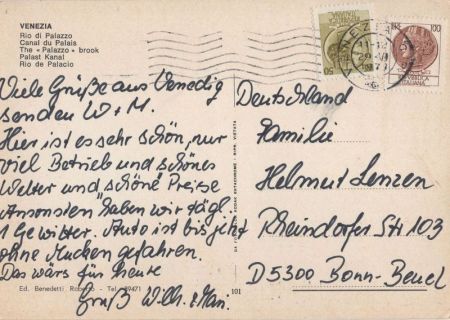 VENEZIA
Rio di Palazzo
Canal du Palais
The « Palazzo » brook
Palast Kanal
Rio de Palacio
Viele Grüße aus Venedig
senden W + M.
Hier ist es sehr schön, nur
viel Betrieb und schönes
Wetter "und "schöne" Preise
Ansonsten haben wir tägl.
1 Gewitter. Auto ist bis jetzt
ohne Mucken gefahren.
Das wärs für heute
Gruß Wilh. & Mari.
Ed. Benedetti Roberto - Tel. 89471
101
VENEZIA
11-12
29 VI
1977
50
100
Deutschland
Familie
Helmut Lenzen
Rheindorfer Str 103
D5300 Bonn-Beuel